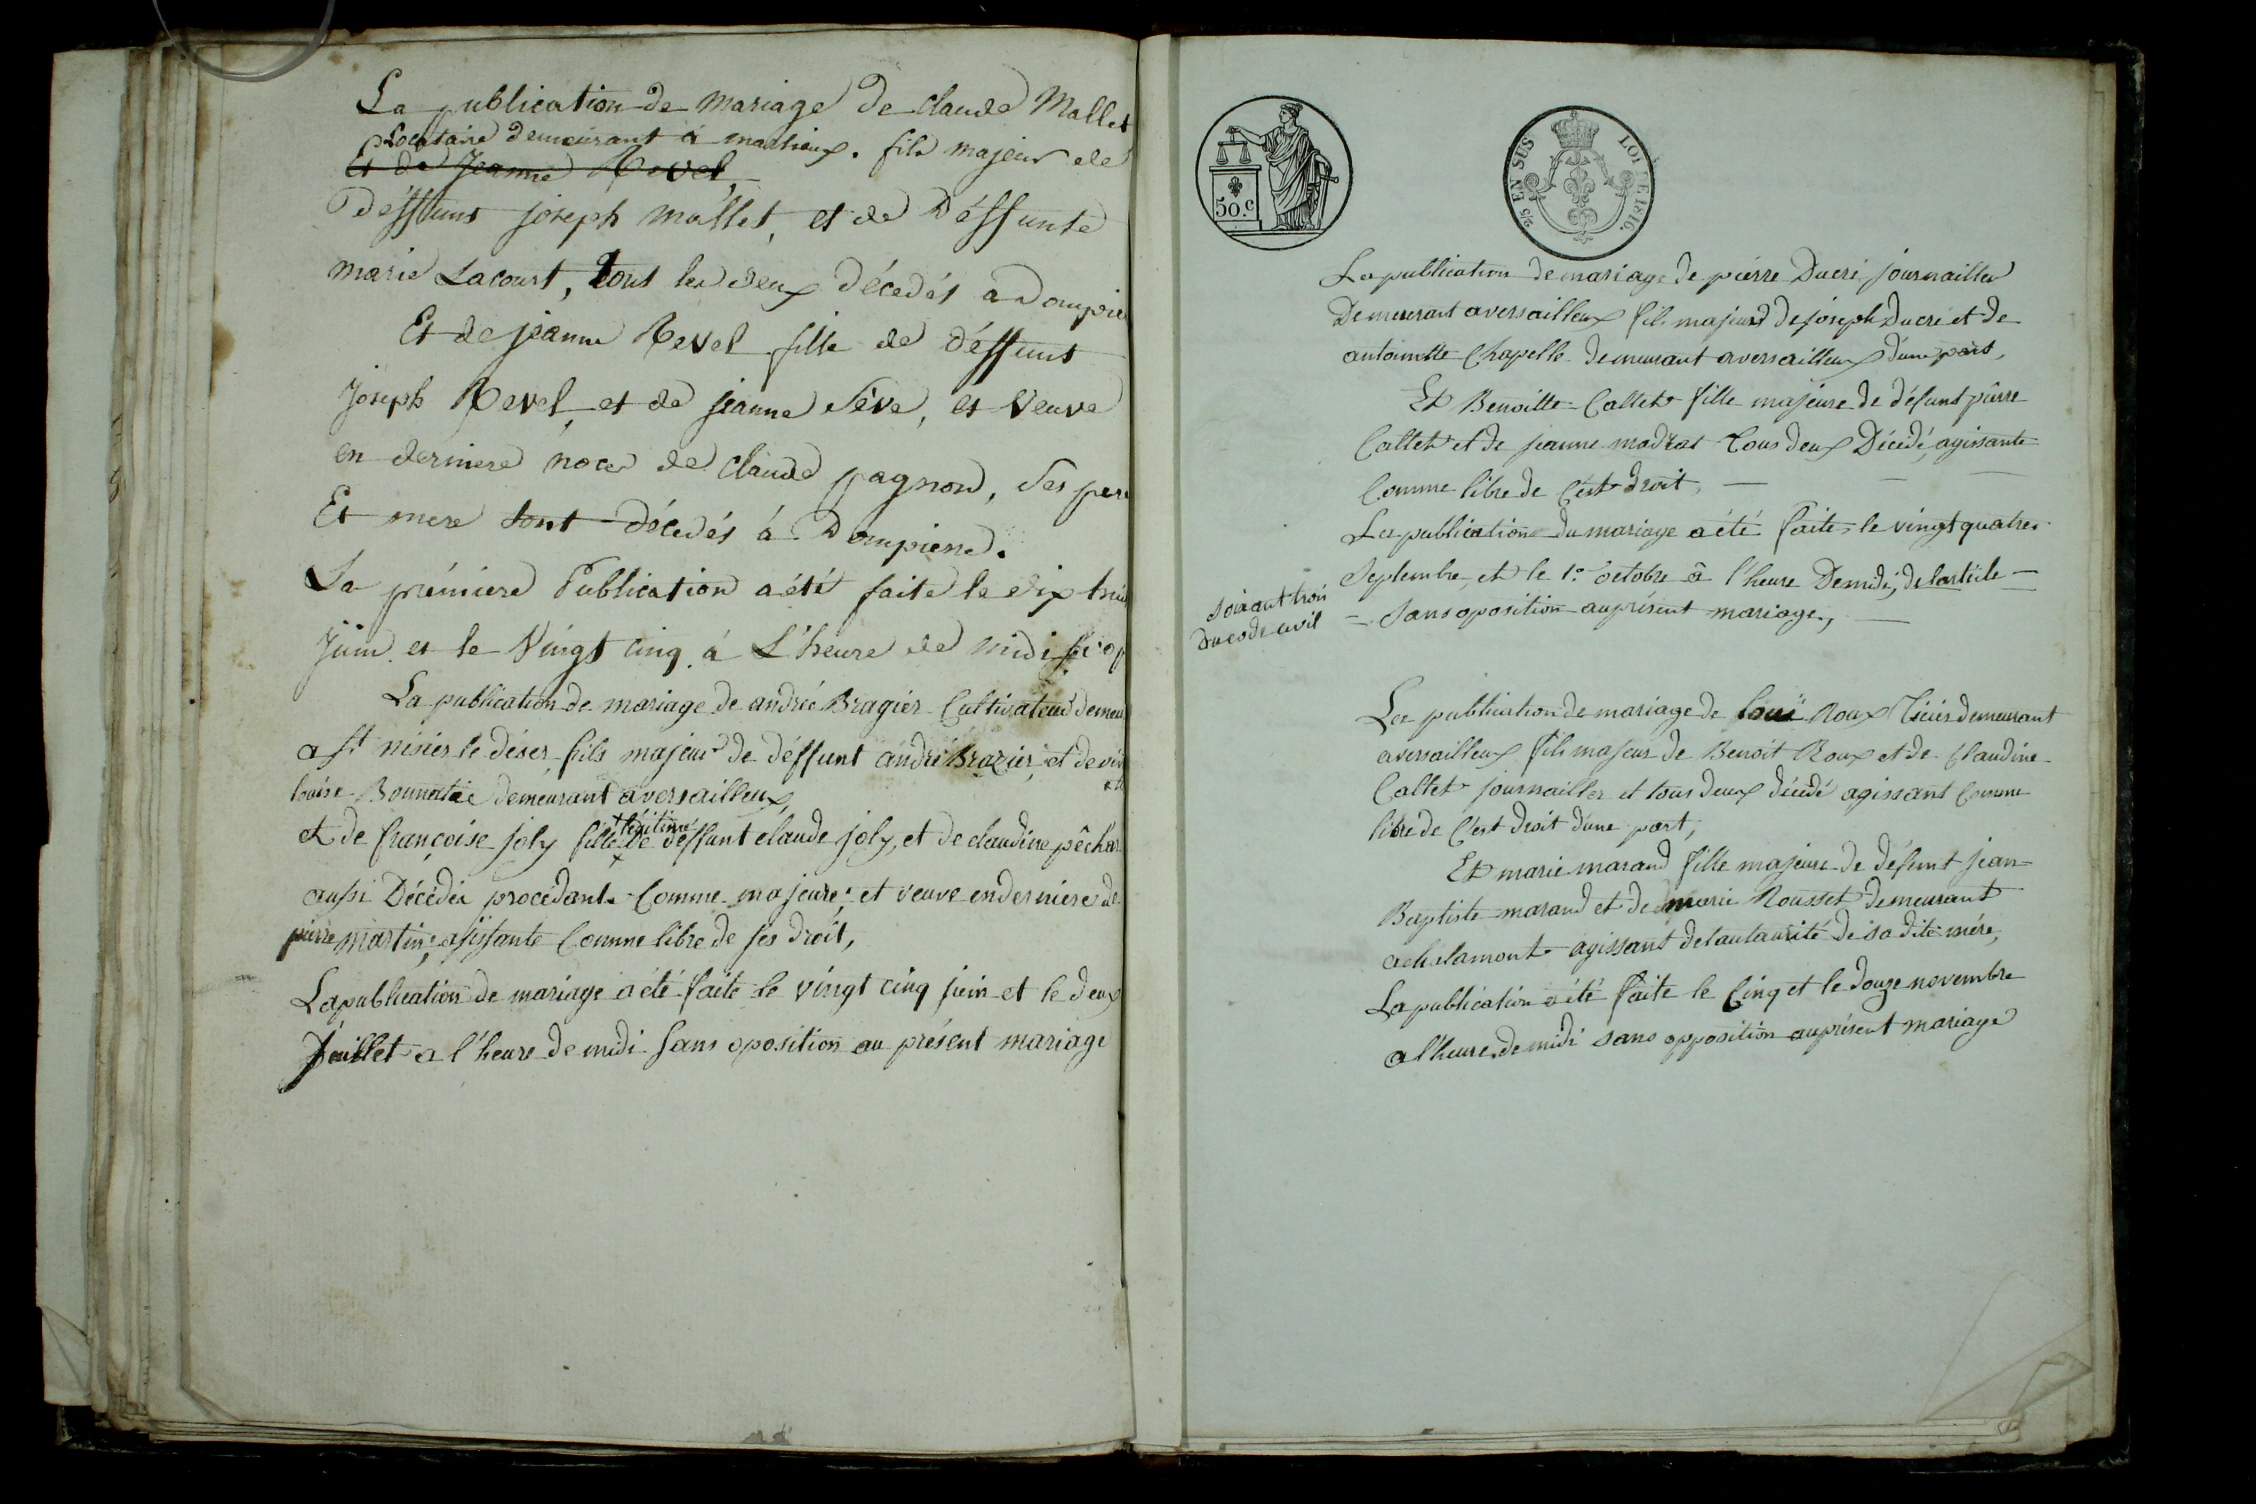 La publication de mariage de claude Mallet
Locataire demeurant à marlieux. fils majeur de
Et de Jeanne Revel
déffunt joseph mallet, et de Déffunte
marie Lacourt, tout les deux décedés a Dompie
Et de jeanne Revel fille de déffunt
Joseph Revel, et de jeanne séve, et Veuve
en derniere noce de Claude pagnon, ses pere
Et mere tout décedés à Dompierre.
La prémiere Publication a été faite le dix huit
Juin et le Vingt cinq à L'heure de midi
La publication de mariage de andréé Bragier Cultivateur demeu
a St nisiér le déser, fils majeur de déffunt andré Brazier, et de
louise Bounatae demeurant a versailleux,
légitime
et de françoise joly fille de déffunt claude joly, et de claudine pêchar
aussi Décédéé procédante Comme majeure, et veuve en derniere de
pierre martin, agissante Comme libre de ses droit,
La publication de mariage a été faite le vingt cinq juin et le deux
Juillet a l'heure de midi sans oposition au présent mariage
50.c
25 EN SUS LOI DE 1816.
La publication de mariage de piérre Ducré journaillier
Demeurant a versailleux fils majeur de joseph Ducré et de
antoinette Chapelle demeurant a versailleux d'une part,
Et Benoitte Callet fille majeure de défunt piérre
Callet et de jeanne modras tous deux Décédé, agissante
Comme libre de c'est droit,
La publication du mariage a été faite, le vingt quatre
Septembre, et le 1.er octobre â l'heure De midi, de l'article
soixant trois
du code civil
sans oposition au présent mariage,
La publication de mariage de loui Roux demeurant
a versailleux fils majeur de Benoit Roux et de Claudine
Callet journaillier et tous deux décédé agissant Comme
libre de C'est droit d'une part,
Et marie marand fille majeure de défunt jean
Baptiste marand et de marie Rousset demeurant
a chalamont agissant de l'autaurité de sa dite mére,
La publication a été faite le Cinq et le douze novembre
a l'heure de midi sans opposition au présent mariage